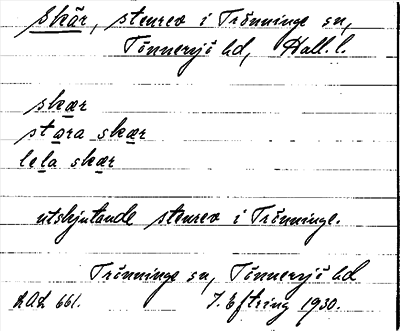 Skär, stenrev i Trönninge sn,
Tönnersjö hd, Hall. l.
skær
stara skær
lela skær
utskjutande stenrev i Trönninge.
Trönninge sn, Tönnersjö hd
LAL 661. J. Eftring 1930.